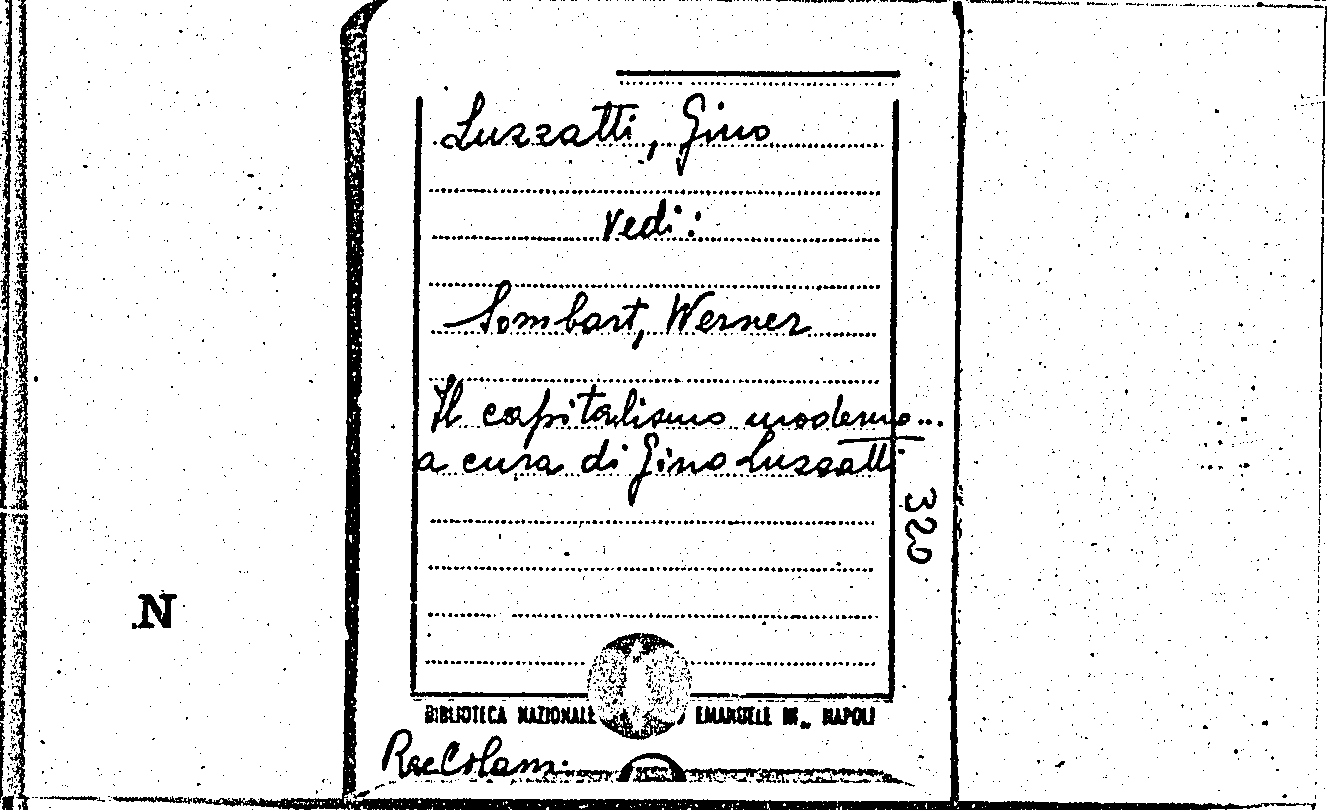 Luzzatti, Gino
vedi:
Sombart, Werner
Il capitalismo moderno...
a cura di Gino Luzzatti
320
N
BIBLIOTECA NAZIONALE EMANUELE III, NAPOLI